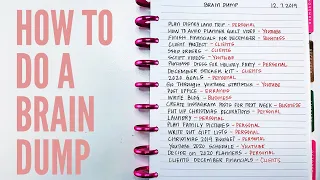 HOW TO
DO A
BRAIN
DUMP
BRAIN DUMP
12.7.2019
PLAN DISNEYLAND TRIP - PERSONAL
HOW TO AVOID PLANNER GUILT VIDEO - YOUTUBE
FINISH FINANCIALS FOR DECEMBER - BUSINESS
CLIENT PROJECT - CLIENTS
SEND ORDERS - CLIENTS
SCRIPT VIDEOS - YOUTUBE
PURCHASE DRESS FOR HOLIDAY PARTY - PERSONAL
DECEMBER STICKER KIT - CLIENTS
2020 GOALS - PERSONAL
GO THROUGH YOUTUBE ANALYTICS - YOUTUBE
POST OFFICE - ERRANDS
WRITE BLOG - BUSINESS
CREATE INSTAGRAM POSTS FOR NEXT WEEK - BUSINESS
PUT UP CHRISTMAS DECORATIONS - PERSONAL
LAUNDRY - PERSONAL
PLAN FAMILY PICTURES - PERSONAL
WRITE OUT GIFT LISTS - PERSONAL
CHRISTMAS 2019 BUDGET - PERSONAL
2020 YOUTUBE SCHEDULE - YOUTUBE
DECIDE ON 2020 PLANNERS - PERSONAL
CLIENTS DECEMBER FINANCIALS - CLIENTS